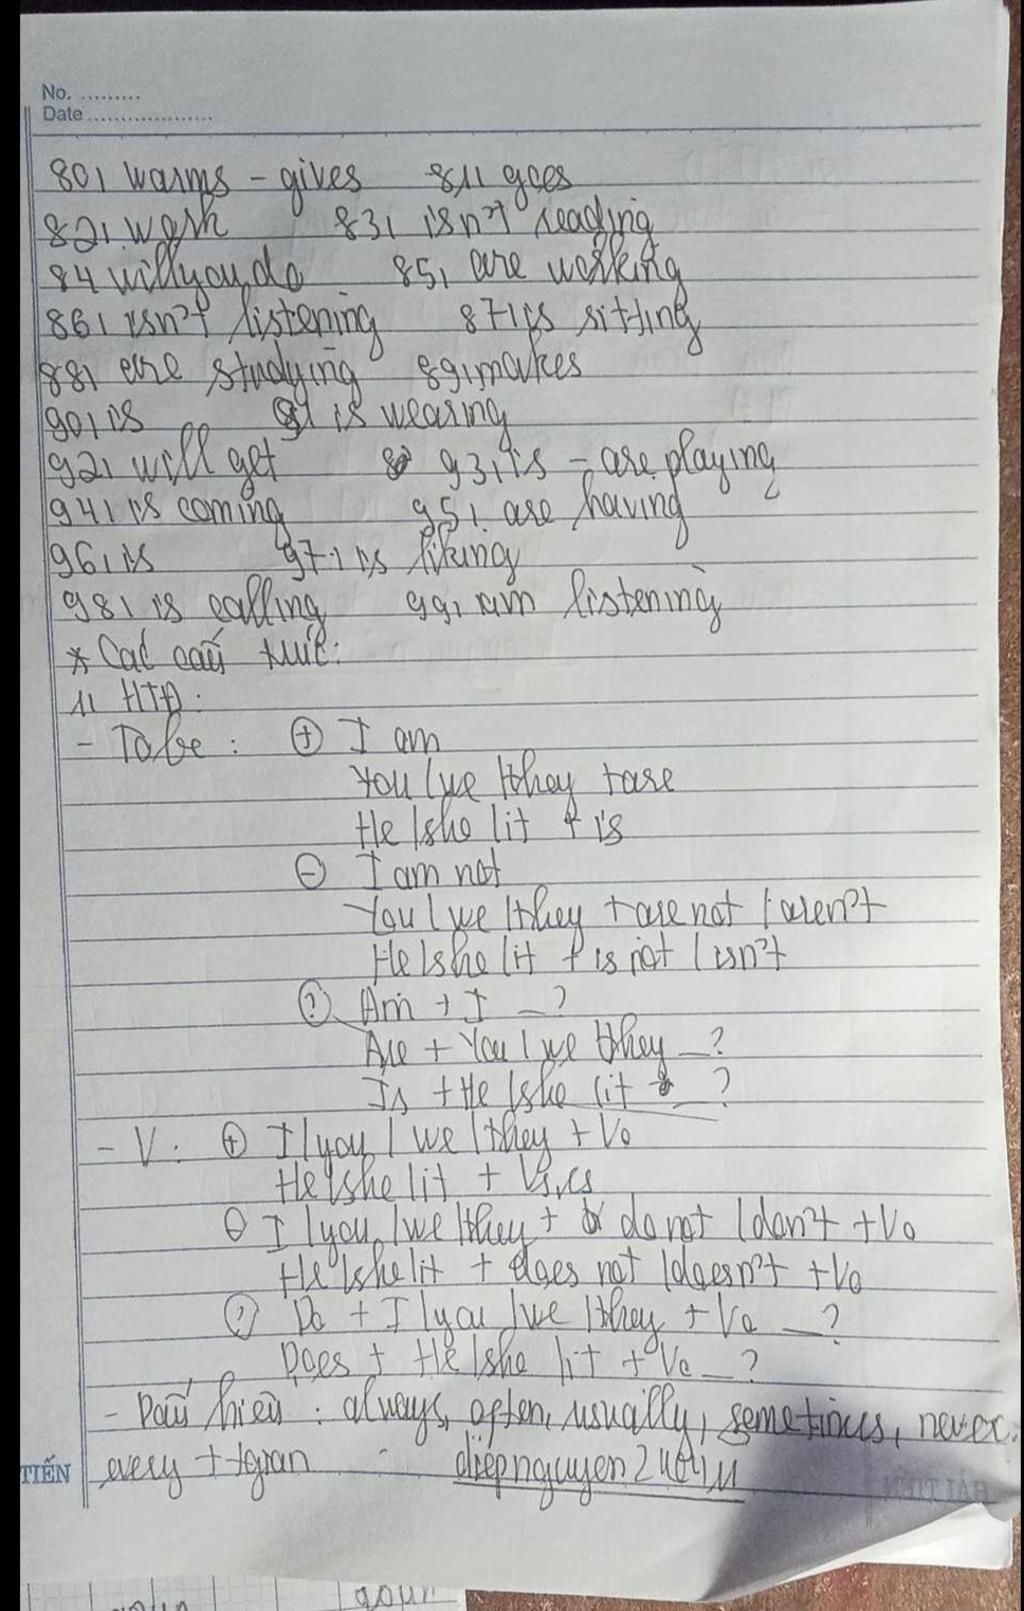 No. .........
Date ...................
801 warms - gives 811 goes
821 work 831 isn't reading
84 will you do 851 are working
861 isn't listening 871 is sitting
881 are studying 891 makes
901 is 91 is wearing
921 will get 931 is - are playing
941 is coming 951 are having
961 is 971 is liking
981 is calling 991 am listening
* Các cấu trúc:
11 HTĐ:
- Tobe: (+) I am
You / we / they + are
He / she / it + is
(-) I am not
You / we / they + are not / aren't
He / she / it + is not / isn't
(?) Am + I _ ?
Are + You / we / they _ ?
Is + He / she / it _ ?
- V: (+) I / you / we / they + Vo
He / she / it + Vs, es
(-) I / you / we / they + do not / don't + Vo
He / she / it + does not / doesn't + Vo
(?) Do + I / you / we / they + Vo _ ?
Does + He / she / it + Vo _ ?
- Dấu hiệu: always, often, usually, sometimes, never.
every + tgian diepnguyen240411
TIẾN